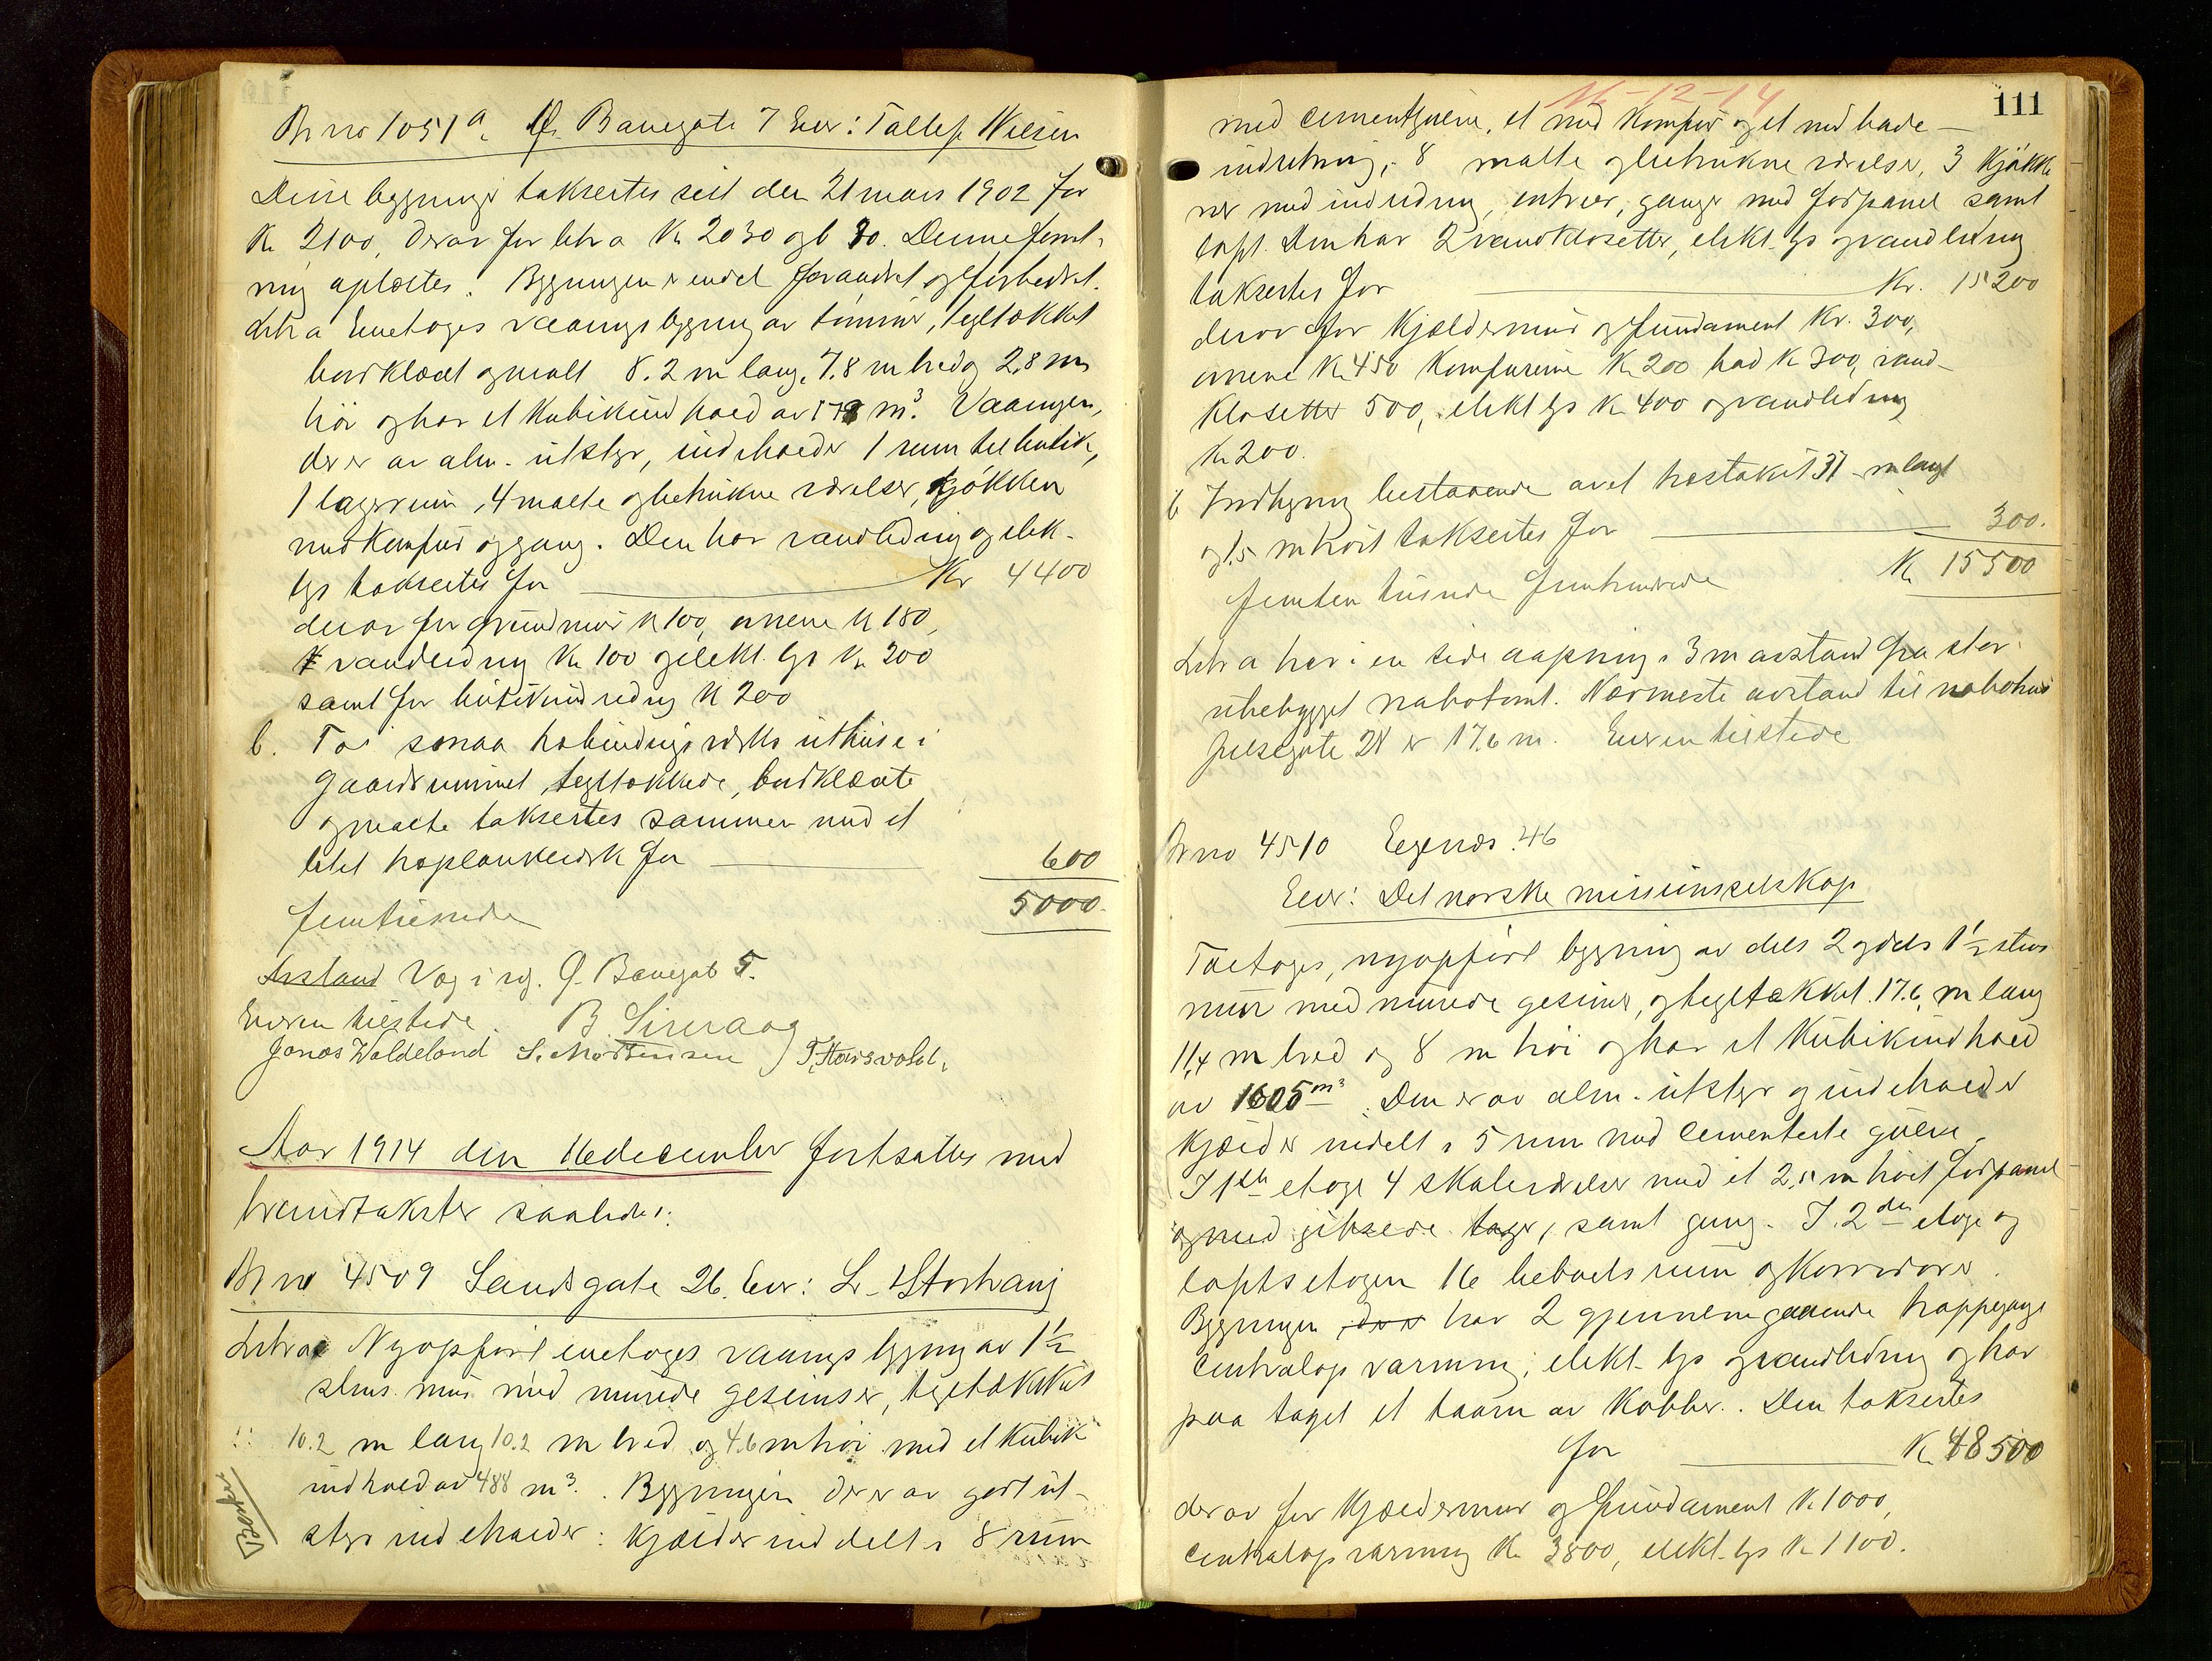 Br no 1051a Ø. Banegate 7 Eier: Tallef Nilsen
Denne bygning takseredes sist den 21 mars 1902 for
Kr 2100, derav for litr a Kr 2030 og b 70. Denne forret-
ning oplæstes. Bygningen er endel forandret og forbedret.
Litr a Enetages vaaningsbygning av tømmer, tegltækket
bordklædt og malt 8.2 m lang, 7.8 m bred og 2,8 m
høi og har et kubikindhold av 179 m³. Vaaningen,
der er av alm. utstyr, indeholder 1 rum til butik,
1 lagerrum, 4 malte og betrukne værelser, kjøkken
med komfur og gang. Den har vandledning og elek-
lys takseres for Kr 4400
derav for grundmur kr 100, ovnene kr 180,
vandledning Kr 100 og elekt. lys kr 200
samt for butikindredning kr 200
b. To smaa bindingsverks uthuse i
gaardsrummet, tegltækkede, bordklædte
og malte takseres sammen med et
litet plankeskur for 600
femtusinde 5000.
Avstand Væg i væg. Ø. Banegate 5.
Eieren tilstede. B. Lineaag
Jonas Waldeland S. Mortensen / T. Hausvold.
Aar 1914 den 16 december fortsattes med
brandtakster saaledes:
Br no 4509 Sandsgate 26. Eier: L. Storhaug
Litr a Nyopført enetages vaaningsbygning av 1½
stens mur med murede gesimser, tegltækket
10.2 m lang 10.2 m bred og 4.6 m høi med et kubik
indhold av 488 m³. Bygningen der er av godt ut-
styr indeholder: Kjelder inddelt i 8 rum
111
16-12-14
med cementgulve, et med komfur og et med bade-
indretning, 8 malte og betrukne værelser, 3 kjøkke
ner med indredning, entreer, gange med forpanel samt
loft. Den har 2 vandklosetter, elekt. lys og vandledning
takseres for Kr. 15200
derav for kjeldermur og fundament Kr. 300,
ovnene Kr 450 komfurene Kr 200 bad Kr 300, vand-
klosetter 500, elekt lys Kr 400 og vandledning
Kr 200.
b Indhegning bestaaende av et træstakit 37 m langt
og 1.5 m høit takseres for 300.
femten tusinde femhundrede Kr 15500
Litr a har i en side aapning i 3 m avstand fra stor
ubebygget nabotomt. Nærmeste avstand til nabohus
Jelsegate 28 er 17.6 m. Eieren tilstede
Br no 4510 Egenes. 46
Eier: Det norske missionsselskap
Toetages, nyopført bygning av dels 2 og dels 1½ stens
mur med murede gesimser, og tegltækket. 17.6 m lang
11,4 m bred og 8 m høi og har et kubikindhold
av 1605 m³. Den er av alm. utstyr og indeholder
Kjelder indelt i 5 rum med cementerte gulve.
I 1ste etage 4 skoleværelser med et 2,5 m høit forpanel
og med gipsede tage, samt gang. I 2den etage og
loftsetagen 16 beboelsesrum og korridorer.
Bygningen der er har 2 gjennemgaaende trappegange
Centralopvarmning, elekt. lys og vandledning og har
paa taget et taarn av kobber. Den takseres
for Kr 48500
derav for kjeldermur og fundament Kr 1000,
Centralopvarmning Kr 3800, elekt. lys Kr 1100.